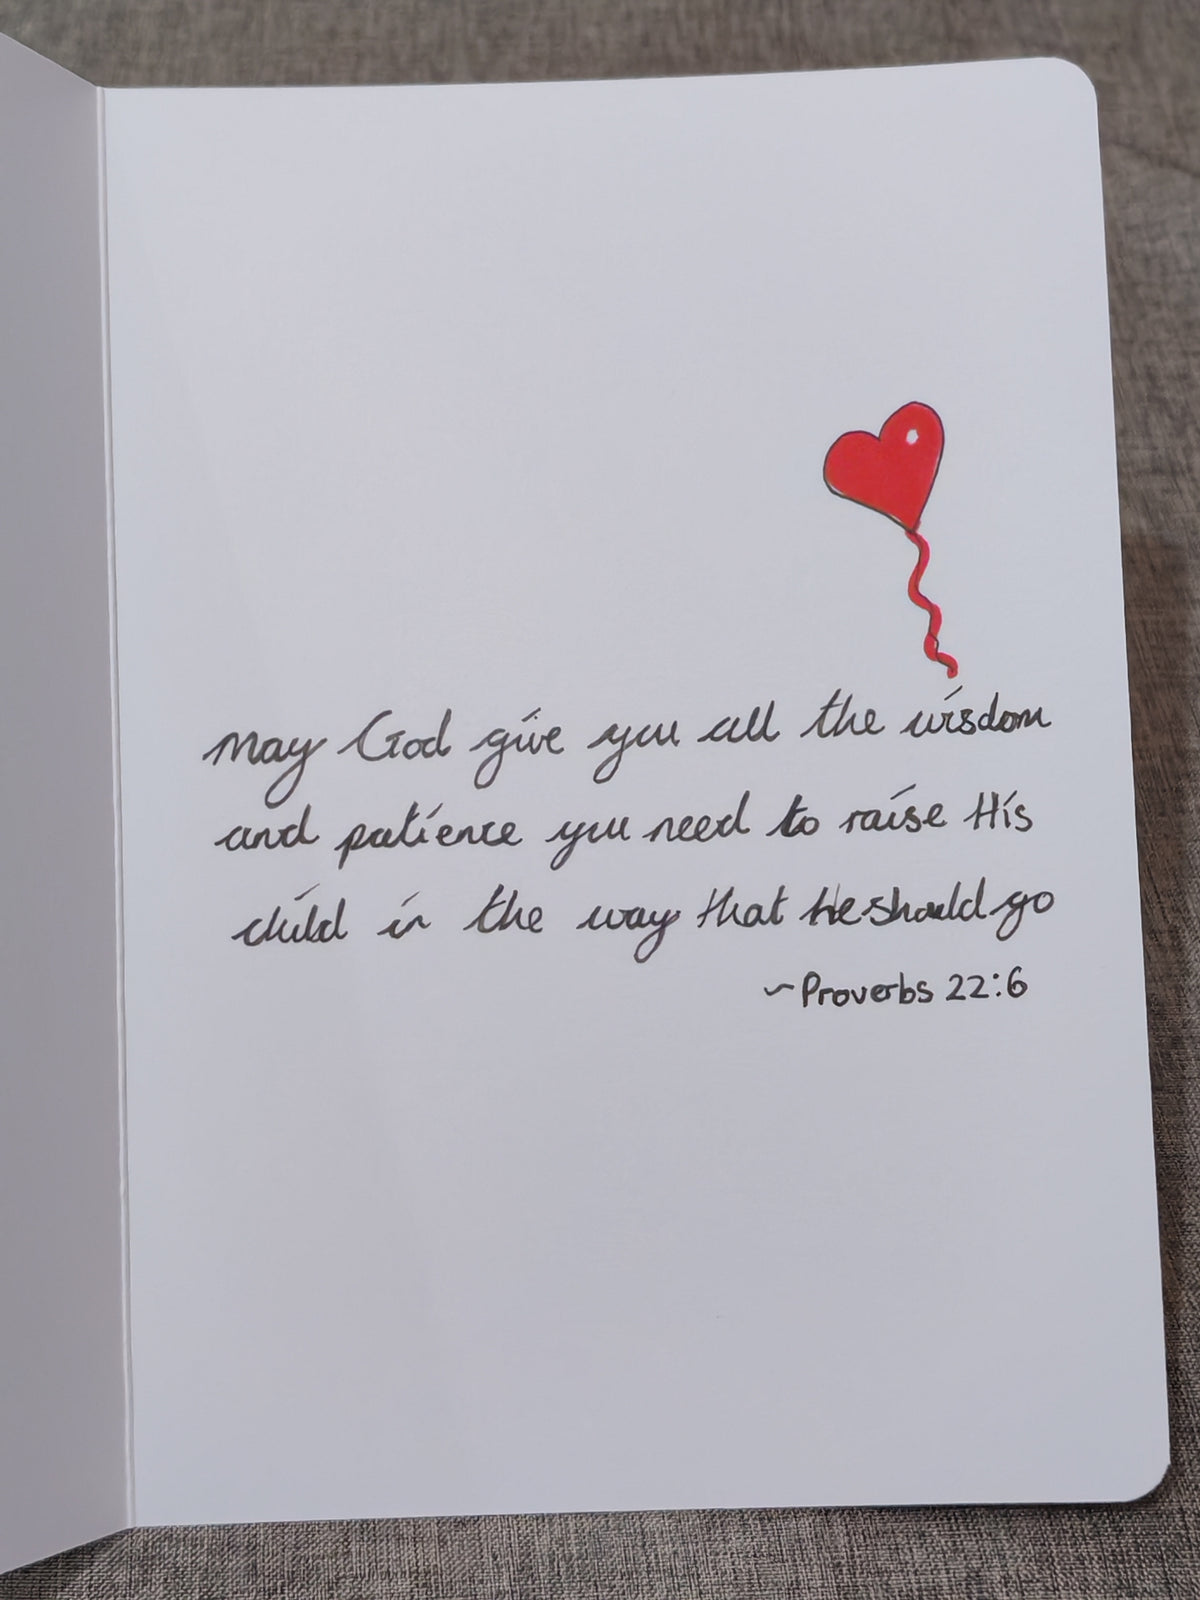 May God give you all the wisdom
and patience you need to raise His
child in the way that He should go
~Proverbs 22:6